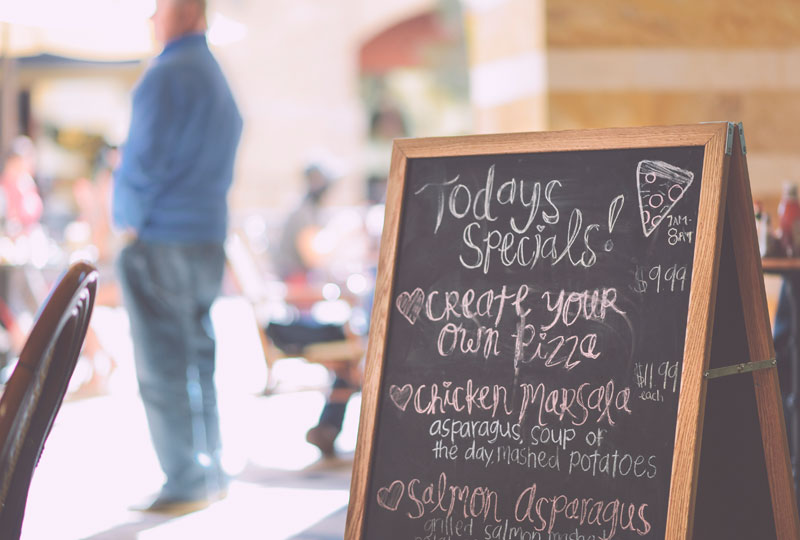 Todays
Specials!
7AM-
8PM
$9.99
create your
own Pizza
$11.99
each
chicken Marsala
asparagus, soup of
the day, mashed potatoes
Salmon Asparagus
grilled salmon mashed